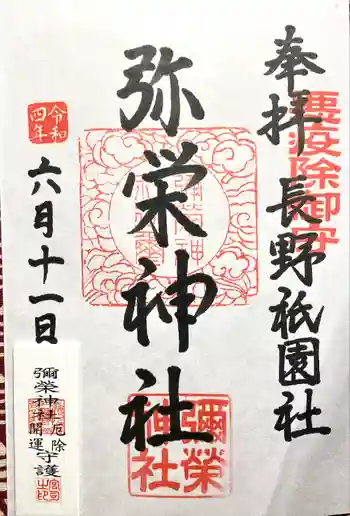 奉拝 長野祇園社
悪疫除御守
弥栄神社
彌榮神社
令和
四年
六月十一日
彌榮神社
厄除
開運
守護